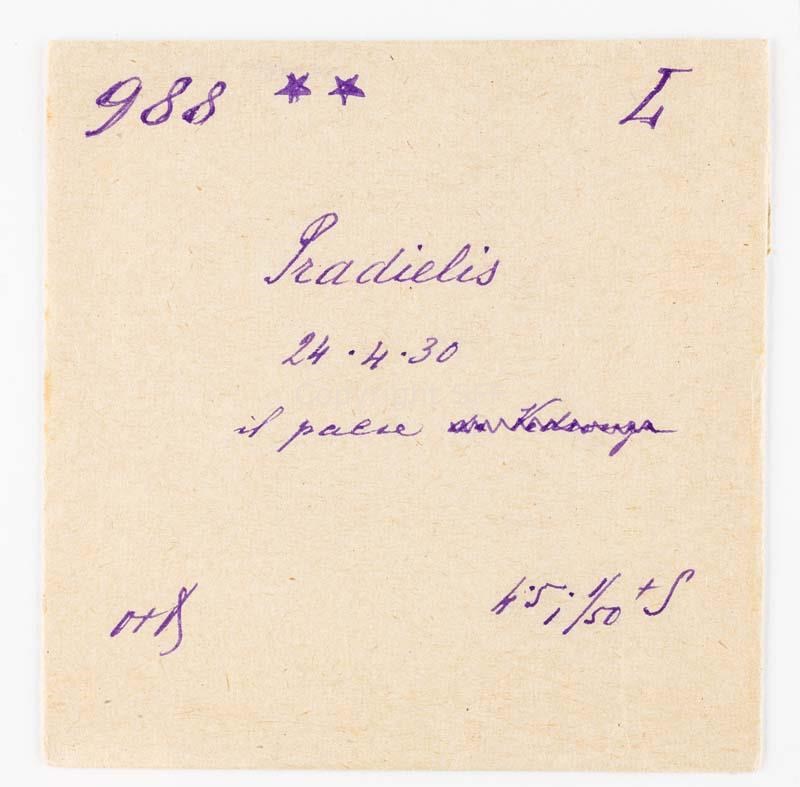 988 ★★ L
Pradielis
24·4·30
il paese
4·5; 1/50 + S